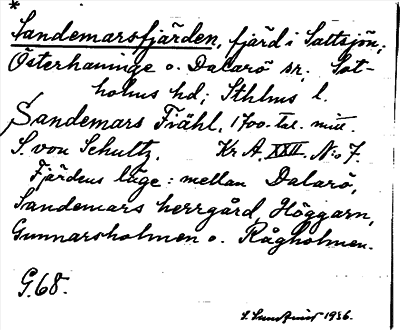 *
Sandemarsfjärden, fjärd i Saltsjön,
Österhaninge o. Dalarö sn, Sot-
holms hd; Sthlms l.
Sandemars Fiähl, 1700-tal. mitt.
S. von Schultz, Kr A. XXII. No 7.
Fjärdens läge: mellan Dalarö,
Sandemars herrgård, Höggarn,
Gunnarsholmen o. Rågholmen.
G.68.
1936.